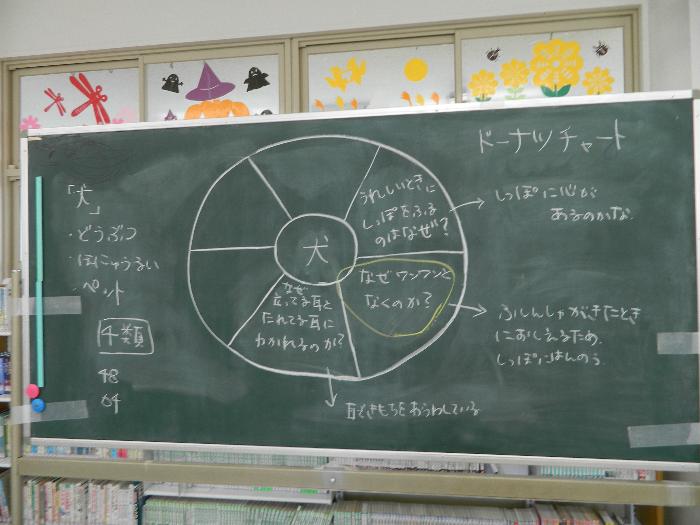 ドーナツチャート
「犬」
・どうぶつ
・ほにゅうるい
・ペット
4類
48
64
犬
うれしいときに
しっぽをふる
のはなぜ?
しっぽに心が
あるのかな。
なぜワンワンと
なくのか?
ふしんしゃがきたとき
におしえるため。
しっぽにはんのう。
なぜ
立ってる耳と
たれてる耳に
わかれるのか?
耳できもちをあらわしている